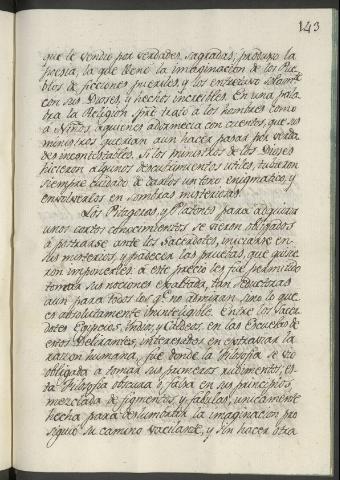 143
que le vendio por verdades sagradas; produxo la
poesia, la que llenó la imaginacion de los Pue
blos de ficciones pueriles, y los entretuvo solamte
con sus Dioses, y hechos increibles. En una pala
bra la Religion spre. trató a los hombres como
a Niños, a quienes adormecia con cuentos, que sus
ministros querian aun hacer pasar por verda
des incontestables. Si los ministros de los Dioses
hicieron algunos descubrimientos utiles, tubieron
siempre cuidado de darlos un tono enigmatico, y
envolverlos en sombras misteriosas.
Los Pitagoras, y Platones para adquirir
unos cortos conocimientos se vieron obligados
a postrarse ante los Sacerdotes, iniciarse en
sus misterios, y padecer las pruebas, que quisie
ron imponerles: a este precio les fue permitido
tomar sus nociones exaltadas, tan seductivas
aun para todos los qe. no admiran sino lo que
es absolutamente ininteligible. Entre los Sacer
dotes Egipcios, Indios, y Caldeos, en las Escuelas de
estos Delirantes, interesados en extraviar la
razon humana, fue donde la Filosofia se vio
obligada a tomar sus primeros rudimentos; es
ta Filosofia obscura, o falsa en sus principios,
mezclada de figmentos, y fabulas, unicamente
hecha para deslumbrar la imaginacion pro
siguio su camino vacilante, y sin hacer otra